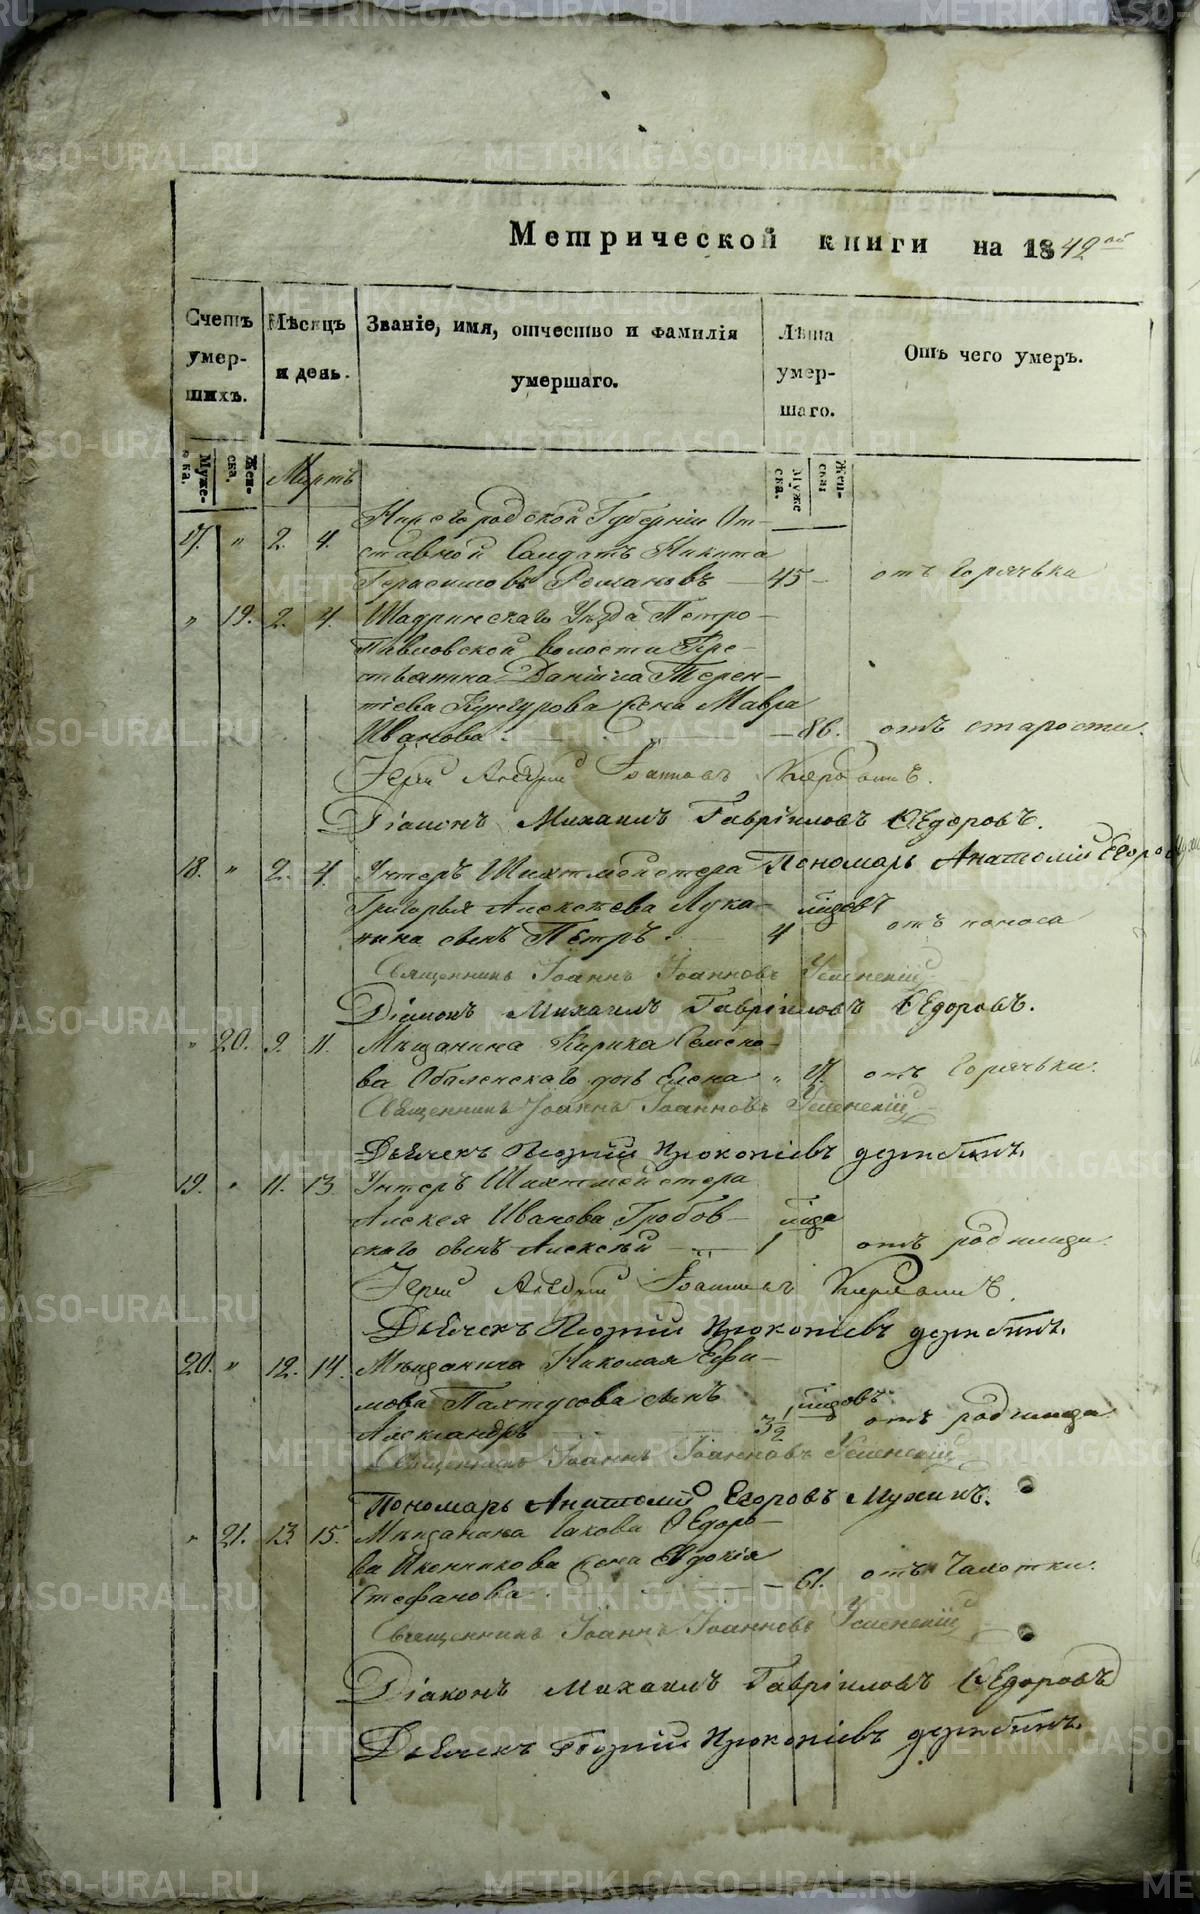 Метрической книги на 1842 об
Счетъ умер- шихъ.
Мѣсяцъ и день.
Званіе, имя, отчество и фамилія умершаго.
Лѣта умер- шаго.
Отъ чего умеръ.
Муже- ска.
Жен- ска.
Мартъ
Муже ска.
Жен- ски
Нижегородской Губерніи От-
17. " 2. 4. ставной Солдатъ Никита
Герасимовъ Романовъ — 45 — отъ Горячьки
" 19. 2. 4. Шадринскаго Уѣзда Петро-
павловской волости Кре-
стьянина Даніила Терен-
тіева Кунгурова жена Мавра
Иванова — 86. отъ старости.
Іерей Андрей Іоанновъ
Діаконъ Михаилъ Гавріиловъ Ѳедоровъ.
Пономарь Анатолій Егоровъ
18. " 2. 4. Унтеръ Шихтмейстера
Григорья Алексѣева Лука-
нина сынъ Петръ. 4 мѣсяцовъ отъ поноса
Священникъ Іоаннъ Іоанновъ Успенскій
Діаконъ Михаилъ Гавріиловъ Ѳедоровъ.
" 20. 9. 11. Мѣщанина Кирика Семено-
ва Оболенскаго дочь Елена " 17. отъ Горячьки.
Священникъ Іоаннъ Іоанновъ Успенскій
Дьячекъ Георгій Прокопіевъ Держбинъ.
19. " 11. 13. Унтеръ Шихтмейстера
Алексея Иванова Гробов-
скаго сынъ Алексѣй — 1 мѣсяца отъ родимца.
Іерей Андрей Іоанновъ
Дьячекъ Георгій Прокопіевъ Держбинъ.
20. " 12. 14. Мѣщанина Николая Ефи-
мова Пахтусова сынъ
Александръ 3 1/2 мѣсяцовъ отъ родимца
Священникъ Іоаннъ Іоанновъ Успенскій
Пономарь Анатолій Егоровъ Мухинъ.
" 21. 13. 15. Мѣщанина Іакова Ѳедоро-
ва Иконникова жена Евдокія
Стефанова. — 61. отъ Чахотки.
Священникъ Іоаннъ Іоанновъ Успенскій
Діаконъ Михаилъ Гавріиловъ Ѳедоровъ
Дьячекъ Георгій Прокопіевъ Держбинъ.
METRIKI.GASO-URAL.RU